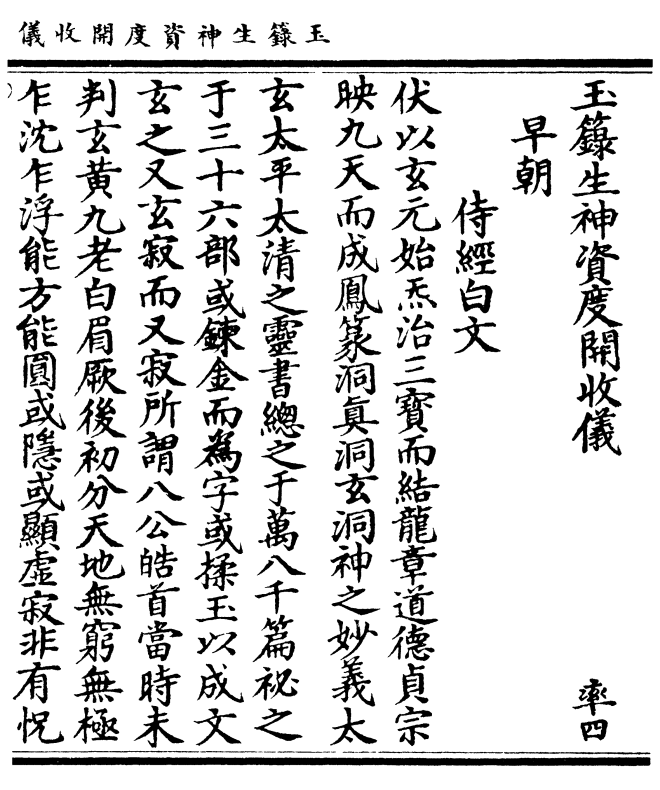 玉籙生神資度開收儀
玉籙生神資度開收儀
率四
早朝
侍經白文
伏以玄元始炁治三寶而結龍章道德貞宗
映九天而成鳳篆洞真洞玄洞神之妙義太
玄太平太清之靈書總之于萬八千篇祕之
于三十六部或鍊金而為字或揉玉以成文
玄之又玄寂而又寂所謂八公皓首當時未
判玄黃九老白眉厥後初分天地無窮無極
乍沈乍浮能方能圓或隱或顯虛寂非有怳